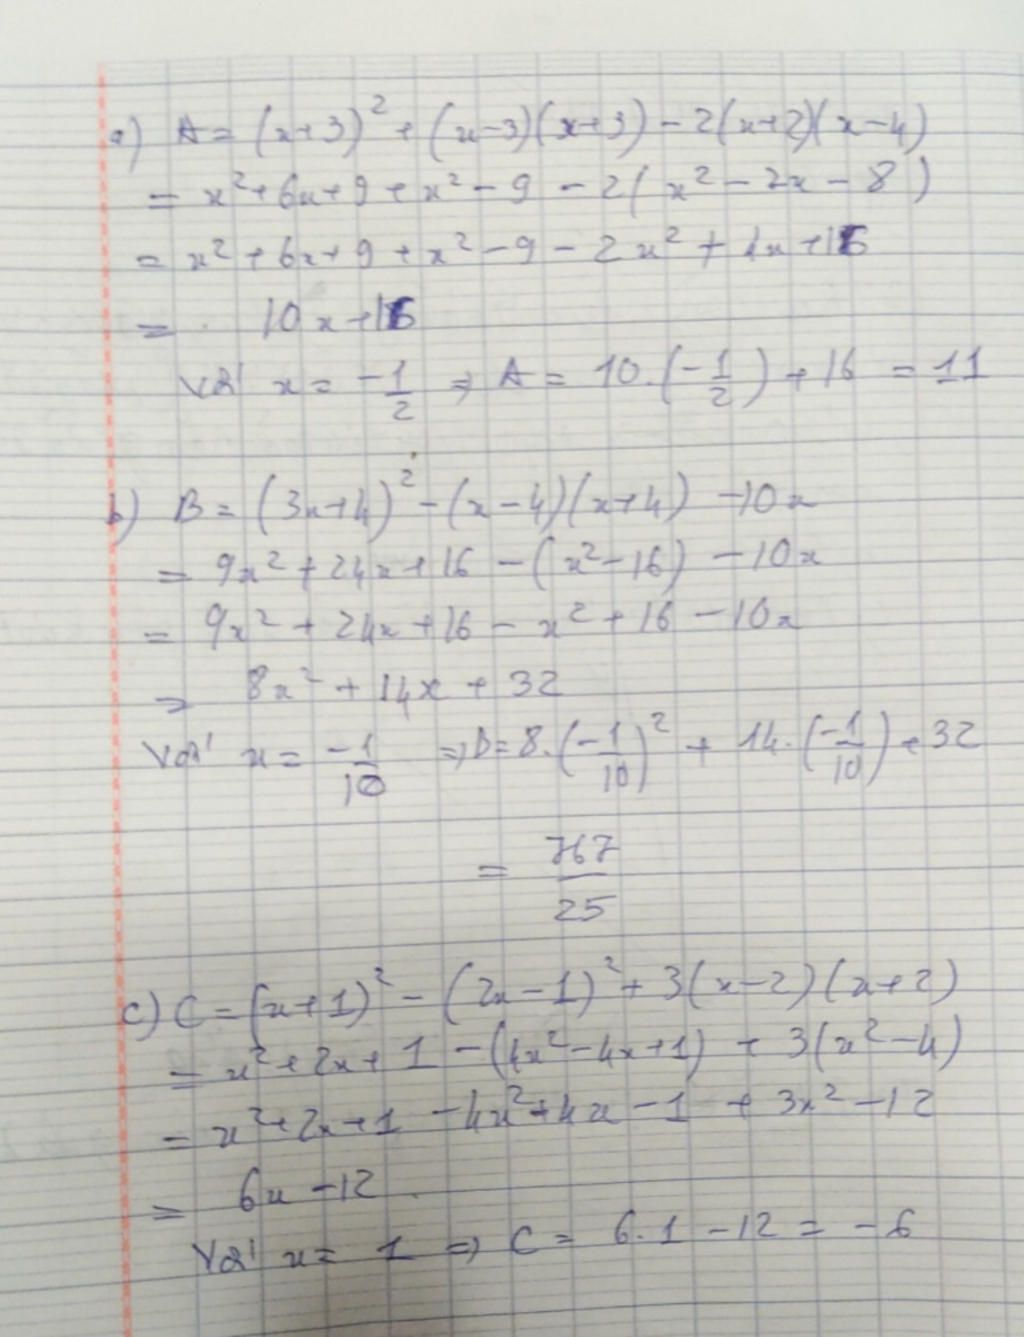 a) A = (x+3)² + (x-3)(x+3) - 2(x+2)(x-4)
= x²+6x+9+x²-9 - 2(x²-2x-8)
= x²+6x+9+x²-9-2x²+4x+16
= 10x+16
Với x = -1/2 ⇒ A = 10.(-1/2)+16 = 11
b) B = (3x+4)² - (x-4)(x+4) -10x
= 9x²+24x+16 -(x²-16) -10x
= 9x²+24x+16-x²+16-10x
= 8x²+14x+32
Với x = -1/10 ⇒ B=8.(-1/10)² + 14.(-1/10)+32
= 767/25
c) C = (x+1)² - (2x-1)² + 3(x-2)(x+2)
= x²+2x+1 -(4x²-4x+1) + 3(x²-4)
= x²+2x+1 -4x²+4x-1 + 3x²-12
= 6x-12
Với x = 1 ⇒ C = 6.1 -12 = -6